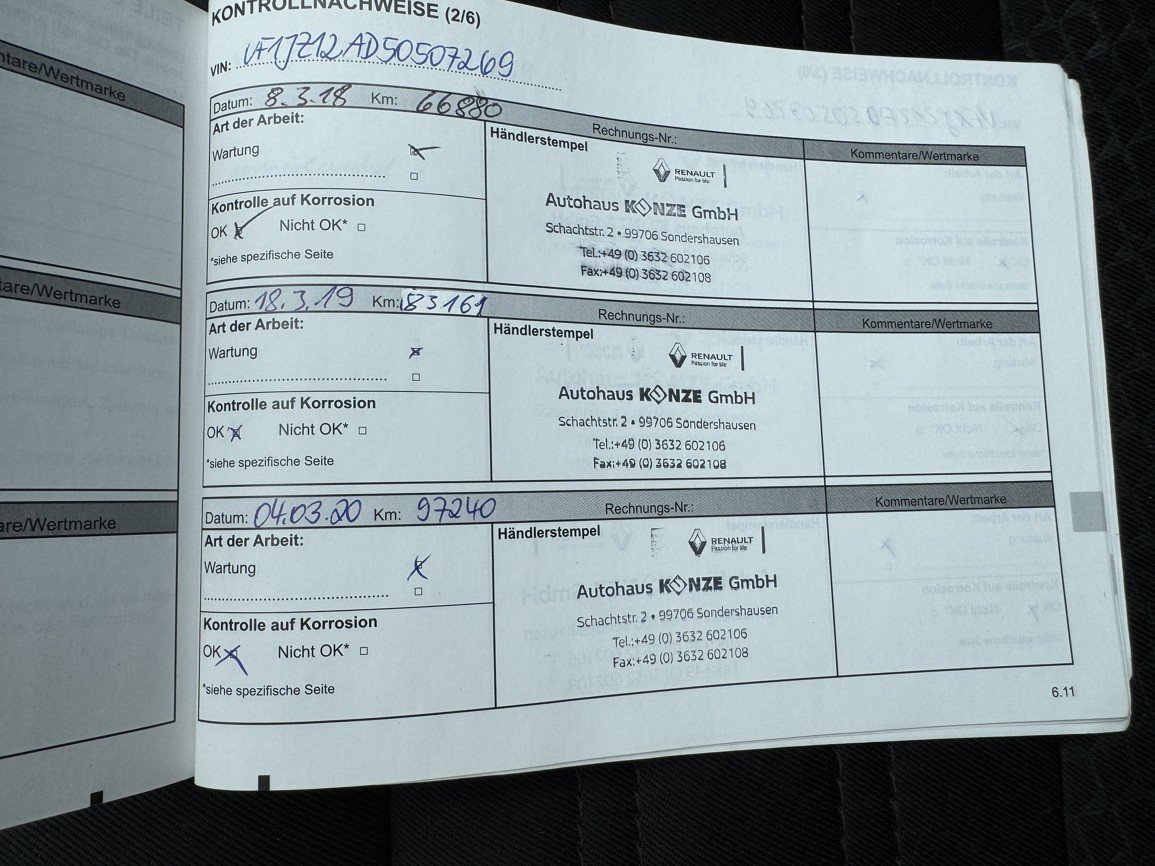 KONTROLLNACHWEISE (2/6)
VIN: VF1JZ12AD50507269
Datum: 8.3.18 Km: 66880
Rechnungs-Nr.:
Kommentare/Wertmarke
Art der Arbeit:
Wartung
Kontrolle auf Korrosion
OK Nicht OK*
*siehe spezifische Seite
Händlerstempel
RENAULT
Passion for life
Autohaus KONZE GmbH
Schachtstr. 2 • 99706 Sondershausen
Tel.:+49 (0) 3632 602106
Fax:+49 (0) 3632 602108
Datum: 18.3.19 Km: 83161
Rechnungs-Nr.:
Kommentare/Wertmarke
Art der Arbeit:
Wartung
Kontrolle auf Korrosion
OK Nicht OK*
*siehe spezifische Seite
Händlerstempel
RENAULT
Passion for life
Autohaus KONZE GmbH
Schachtstr. 2 • 99706 Sondershausen
Tel.:+49 (0) 3632 602106
Fax:+49 (0) 3632 602108
Datum: 04.03.20 Km: 97240
Rechnungs-Nr.:
Kommentare/Wertmarke
Art der Arbeit:
Wartung
Kontrolle auf Korrosion
OK Nicht OK*
*siehe spezifische Seite
Händlerstempel
RENAULT
Passion for life
Autohaus KONZE GmbH
Schachtstr. 2 • 99706 Sondershausen
Tel.:+49 (0) 3632 602106
Fax:+49 (0) 3632 602108
6.11